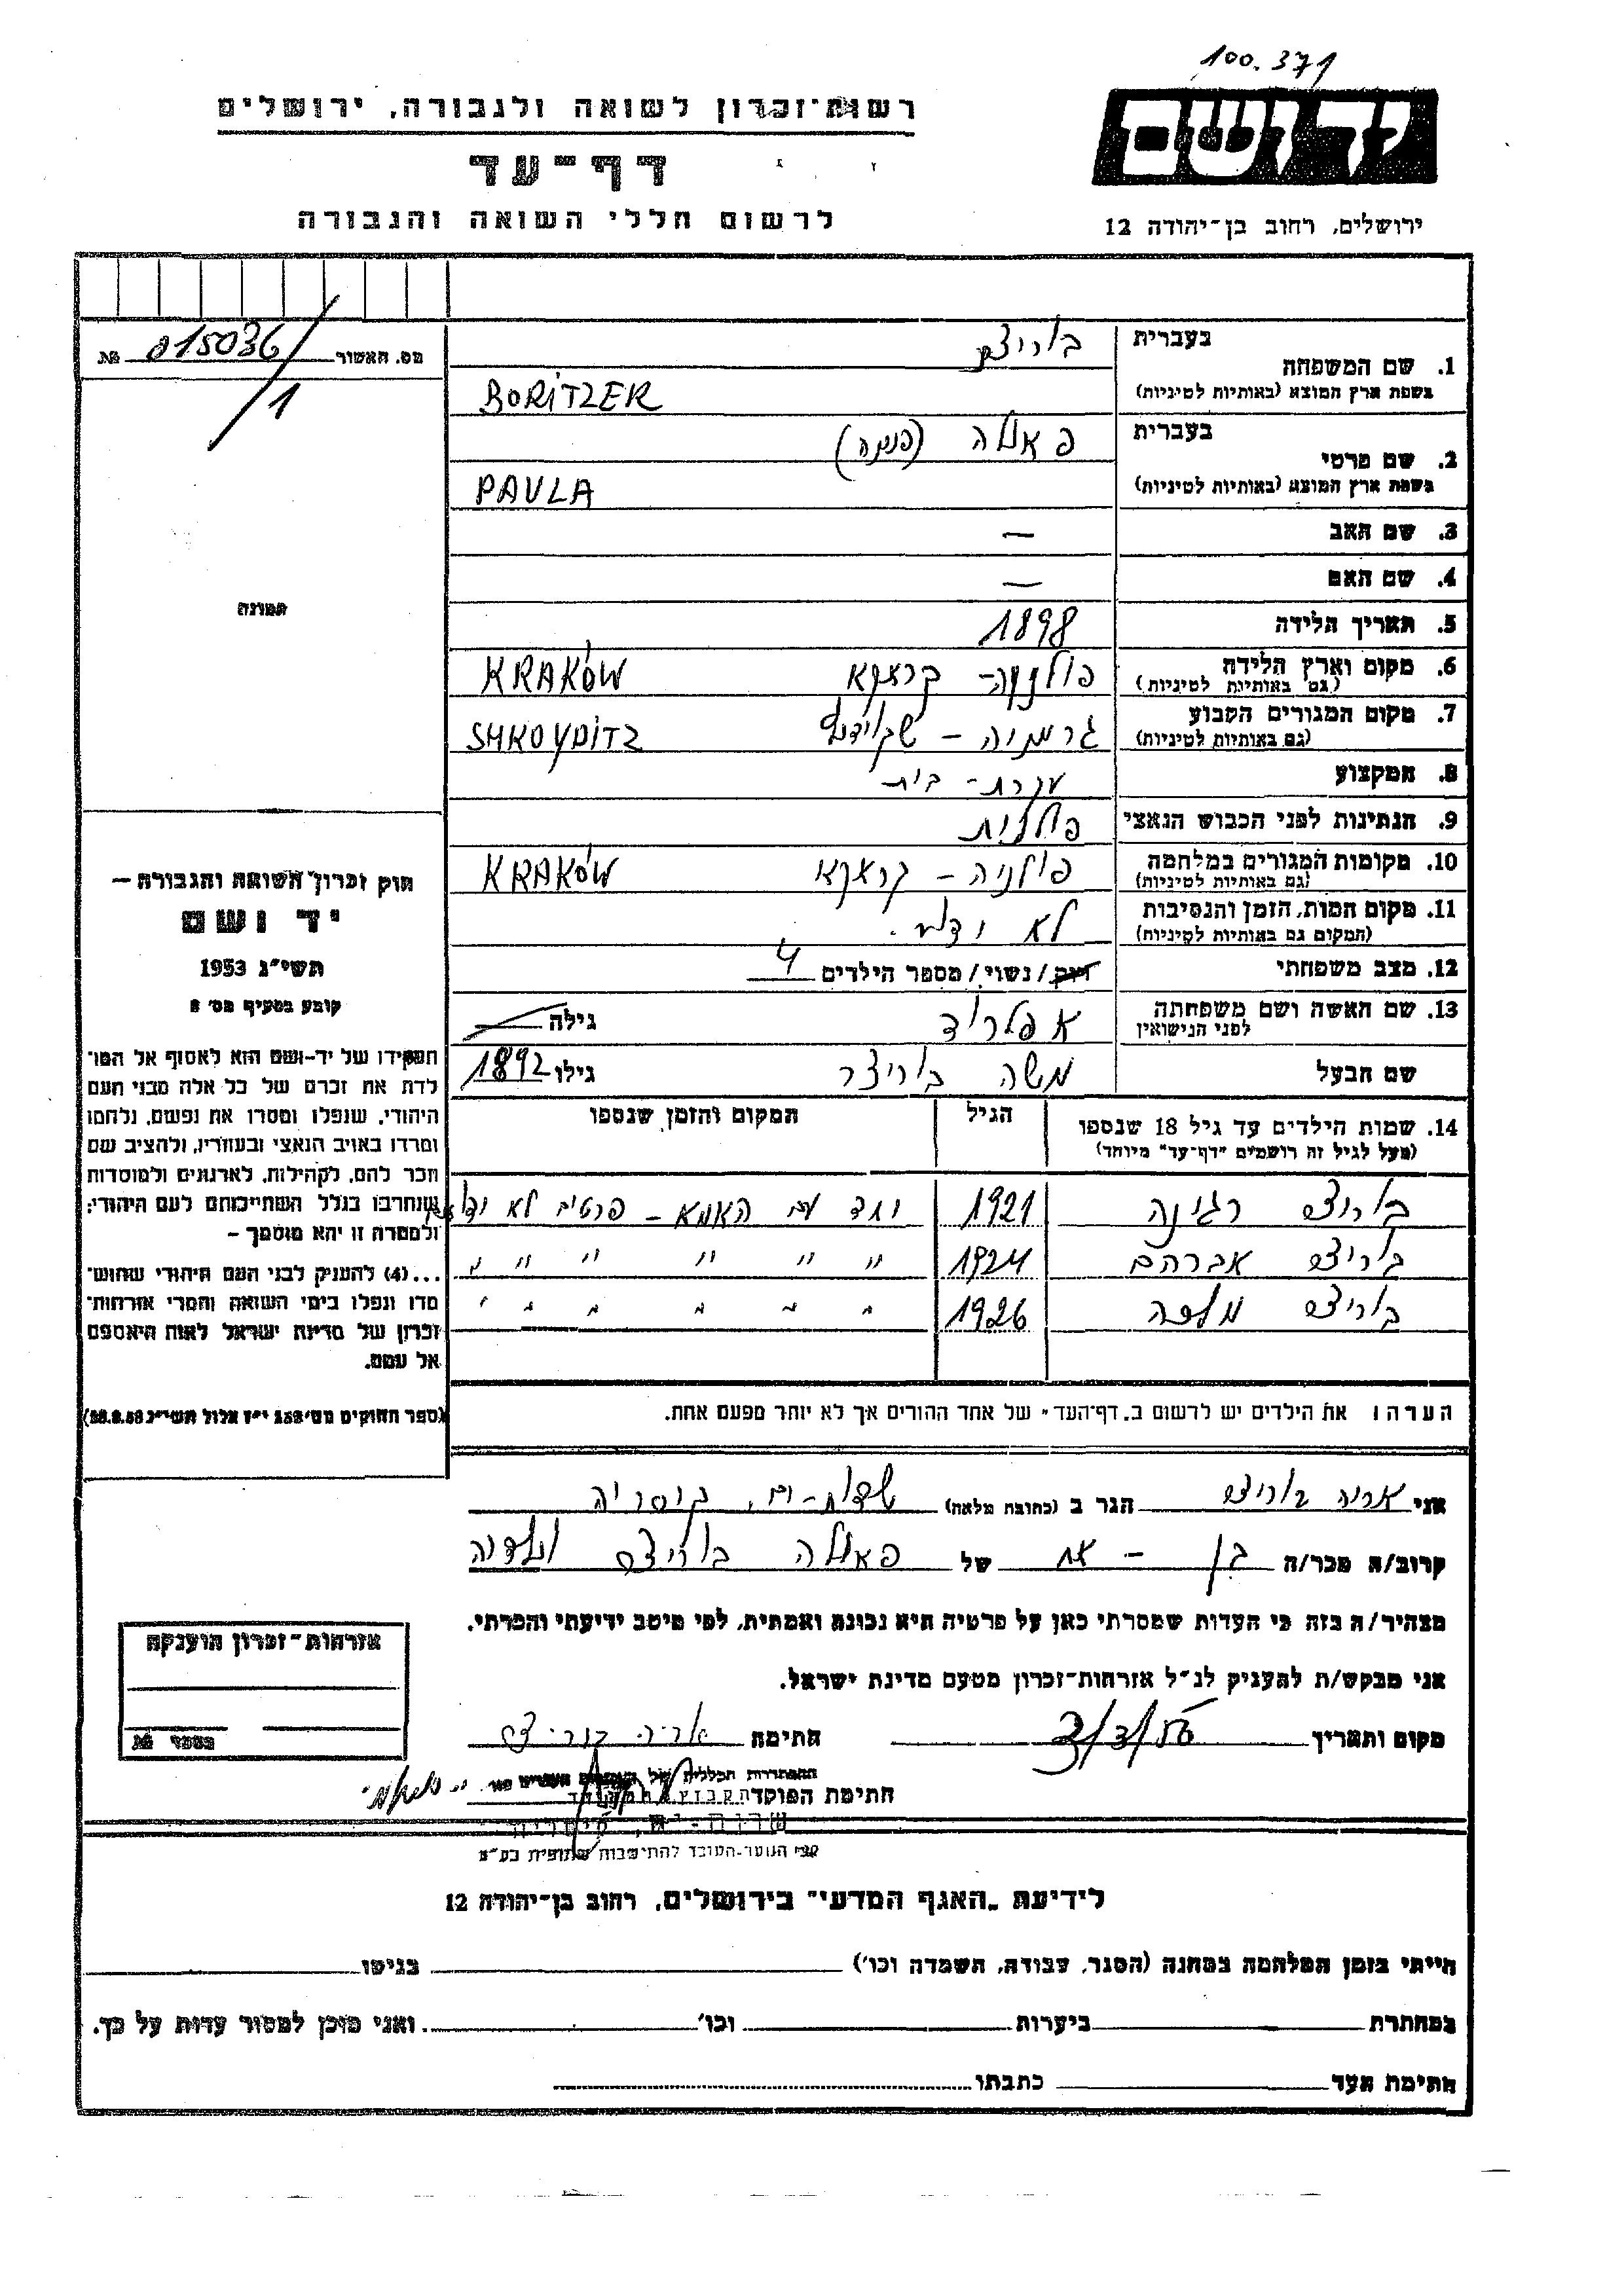 100.371
רשות־זכרון לשואה ולגבורה, ירושלים
יד ושם
דף־עד
לרשום חללי השואה והגבורה
ירושלים, רחוב בן־יהודה 12
מס. האשור 015036/1 №
תמונה
בעברית
1. שם המשפחה בוריצר
בשפת ארץ המוצא (באותיות לטיניות) BORITZER
בעברית פאולה
2. שם פרטי
בשפת ארץ המוצא (באותיות לטיניות) PAULA
3. שם האב —
4. שם האם —
5. תאריך הלידה 1898
6. מקום וארץ הלידה פולניה - קראקא KRAKÓW
(גם באותיות לטיניות)
7. מקום המגורים הקבוע גרמניה - SHKOYDITZ
(גם באותיות לטיניות)
8. המקצוע עקרת-בית
9. הנתינות לפני הכבוש הנאצי פולנית
10. מקומות המגורים במלחמה פולניה - קראקא KRAKÓW
(גם באותיות לטיניות)
11. מקום המות, הזמן והנסיבות לא ידוע.
(המקום גם באותיות לטיניות)
12. מצב משפחתי רווק/נשוי/מספר הילדים 4
13. שם האשה ושם משפחתה אפלרוד גילה —
לפני הנישואין
שם הבעל משה בוריצר גילו 1892
14. שמות הילדים עד גיל 18 שנספו הגיל המקום והזמן שנספו
(מעל לגיל זה רושמים "דף־עד" מיוחד)
בוריצר רגינה 1921 יחד עם האמא - פרטים לא ידוע
בוריצר אברהם 1924 " " " " " "
בוריצר מלכה 1926 " " " " " "
הערה: את הילדים יש לרשום ב„דף־העד" של אחד ההורים אך לא יותר מפעם אחת.
חוק זכרון השואה והגבורה —
יד ושם
תשי"ג 1953
קובע בסעיף מס' 2
תפקידו של יד-ושם הוא לאסוף אל המו־
לדת את זכרם של כל אלה מבני העם
היהודי, שנפלו ומסרו את נפשם, נלחמו
ומרדו באויב הנאצי ובעוזריו, ולהציב שם
וזכר להם, לקהילות, לארגונים ולמוסדות
שנחרבו בגלל השתייכותם לעם היהודי;
ולמטרה זו יהא מוסמך —
...(4) להעניק לבני העם היהודי שהוש־
מדו ונפלו בימי השואה והמרי אזרחות־
זכרון של מדינת ישראל לאות היאספם
אל עמם.
(ספר החוקים מס' 132 י"ז אלול תשי"ג 28.8.53)
אני אריה בוריצר הגר ב (כתובת מלאה) שדות-ים, קיסריה
קרוב/ה מכר/ה בן - של פאולה בוריצר
מצהיר/ה בזה כי העדות שמסרתי כאן על פרטיה היא נכונה ואמתית, לפי מיטב ידיעתי והכרתי.
אני מבקש/ת להעניק לנ"ל אזרחות־זכרון מטעם מדינת ישראל.
מקום ותאריך חתימה אריה בוריצר
חתימת הפוקד
שדות-ים, קיסריה
אזרחות־זכרון הוענקה
מספר №
לידיעת „האגף המדעי" בירושלים, רחוב בן־יהודה 12
הייתי בזמן המלחמה במחנה (הסגר, עבודה, השמדה וכו') בגיטו
במחתרת ביערות וכו' ואני מוכן למסור עדות על כך.
חתימת העד כתבתו